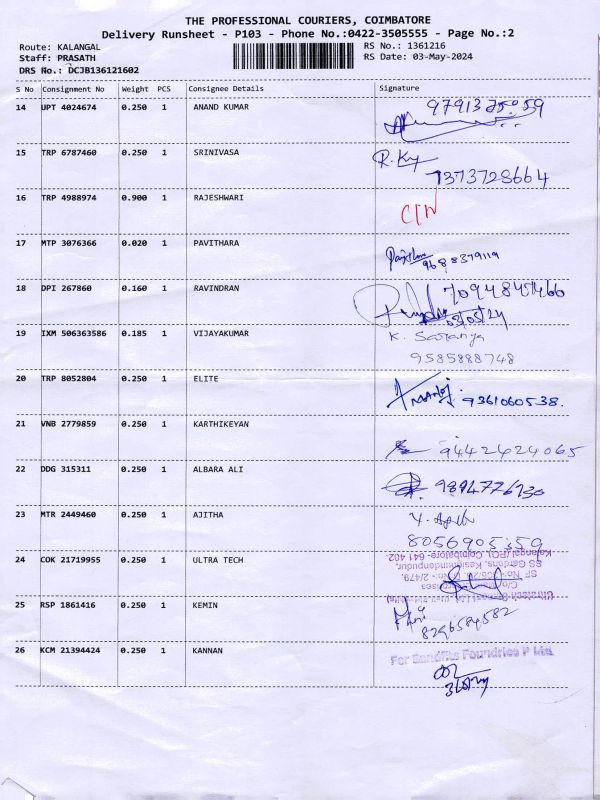 THE PROFESSIONAL COURIERS, COIMBATORE
Delivery Runsheet - P103 - Phone No.:0422-3505555 - Page No.:2
Route: KALANGAL RS No.: 1361216
Staff: PRASATH RS Date: 03-May-2024
DRS No.: DCJB136121602
S No Consignment No Weight PCS Consignee Details Signature
14 UPT 4024674 0.250 1 ANAND KUMAR
15 TRP 6787460 0.250 1 SRINIVASA R.
7373728664
16 TRP 4988974 0.900 1 RAJESHWARI
17 MTP 3076366 0.020 1 PAVITHARA
9688379119
18 DPI 267860 0.160 1 RAVINDRAN
03/05/24
19 IXM 506363586 0.185 1 VIJAYAKUMAR K. Saranya
9585888748
20 TRP 8052804 0.250 1 ELITE 9361060538.
21 VNB 2779859 0.250 1 KARTHIKEYAN 9442424065
22 DDG 315311 0.250 1 ALBARA ALI
23 MTR 2449460 0.250 1 AJITHA
8056905359
24 COK 21719955 0.250 1 ULTRA TECH
Kalangal (PO), Coimbatore- 641 402
SS Gardens,
25 RSP 1861416 0.250 1 KEMIN
8296584582
26 KCM 21394424 0.250 1 KANNAN
For Foundries P Ltd